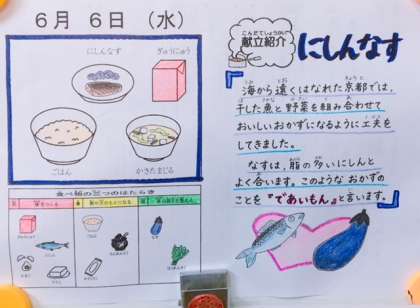 6月 6日 (水)
にしんなす
ぎゅうにゅう
ごはん
かきたまじる
食べ物の三つのはたらき
こんだてしょうかい
献立紹介
にしんなす
海から遠くはなれた京都では、
干した魚と野菜を組み合わせて
おいしいおかずになるように工夫を
してきました。
なすは、脂の多いにしんと
よく合います。このような おかずの
ことを『であいもん』と言います。